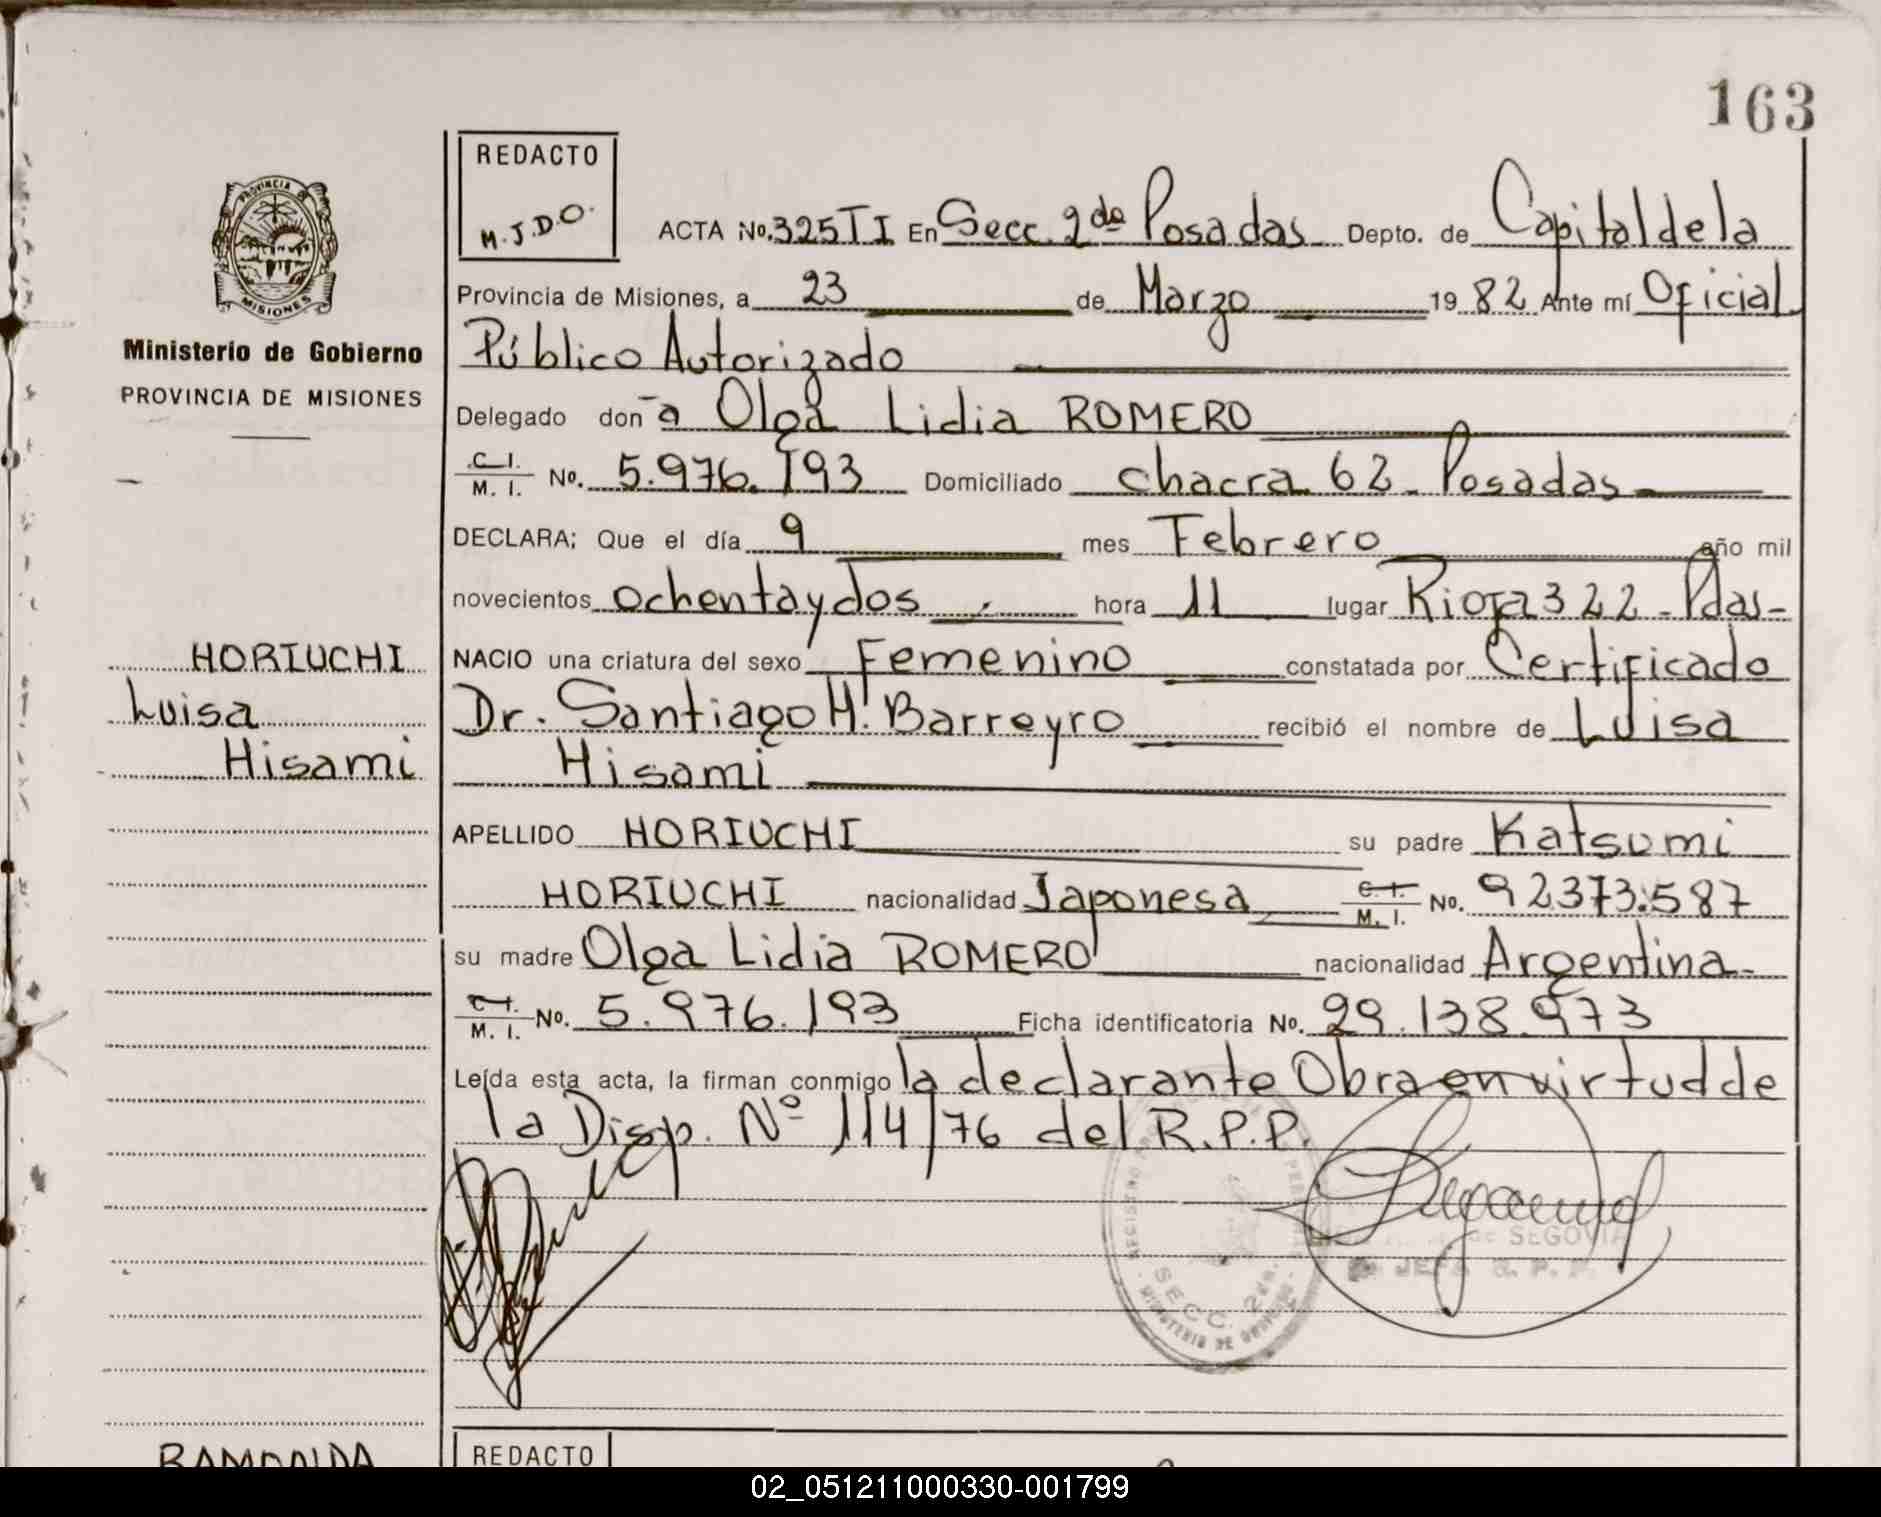 163
REDACTO
M.J.D.O.
PROVINCIA DE
MISIONES
Ministerio de Gobierno
PROVINCIA DE MISIONES
ACTA No. 325 TI En Secc. 2da Posadas Depto. de Capital de la
Provincia de Misiones, a 23 de Marzo 1982 Ante mí Oficial
Público Autorizado
Delegado don a Olga Lidia ROMERO
C. I. / M. I. No. 5.976.193 Domiciliado chacra 62 - Posadas -
DECLARA: Que el día 9 mes Febrero año mil
novecientos ochenta y dos hora 11 lugar Rioja 322 - Pdas -
HORIUCHI
Luisa
Hisami
NACIO una criatura del sexo Femenino constatada por Certificado
Dr. Santiago H. Barreyro recibió el nombre de Luisa
Hisami
APELLIDO HORIUCHI su padre Katsumi
HORIUCHI nacionalidad Japonesa C. I. / M. I. No. 92373.587
su madre Olga Lidia ROMERO nacionalidad Argentina -
C. I. / M. I. No. 5.976.193 Ficha identificatoria No. 29.138.973
Leída esta acta, la firman conmigo la declarante Obra en virtud de
la Disp. Nº 114/76 del R.P.P.
SECC. 2da.
MINISTERIO DE GOBIERNO
de SEGOVIA
JEFA R. P. P.
REDACTO
02_051211000330-001799